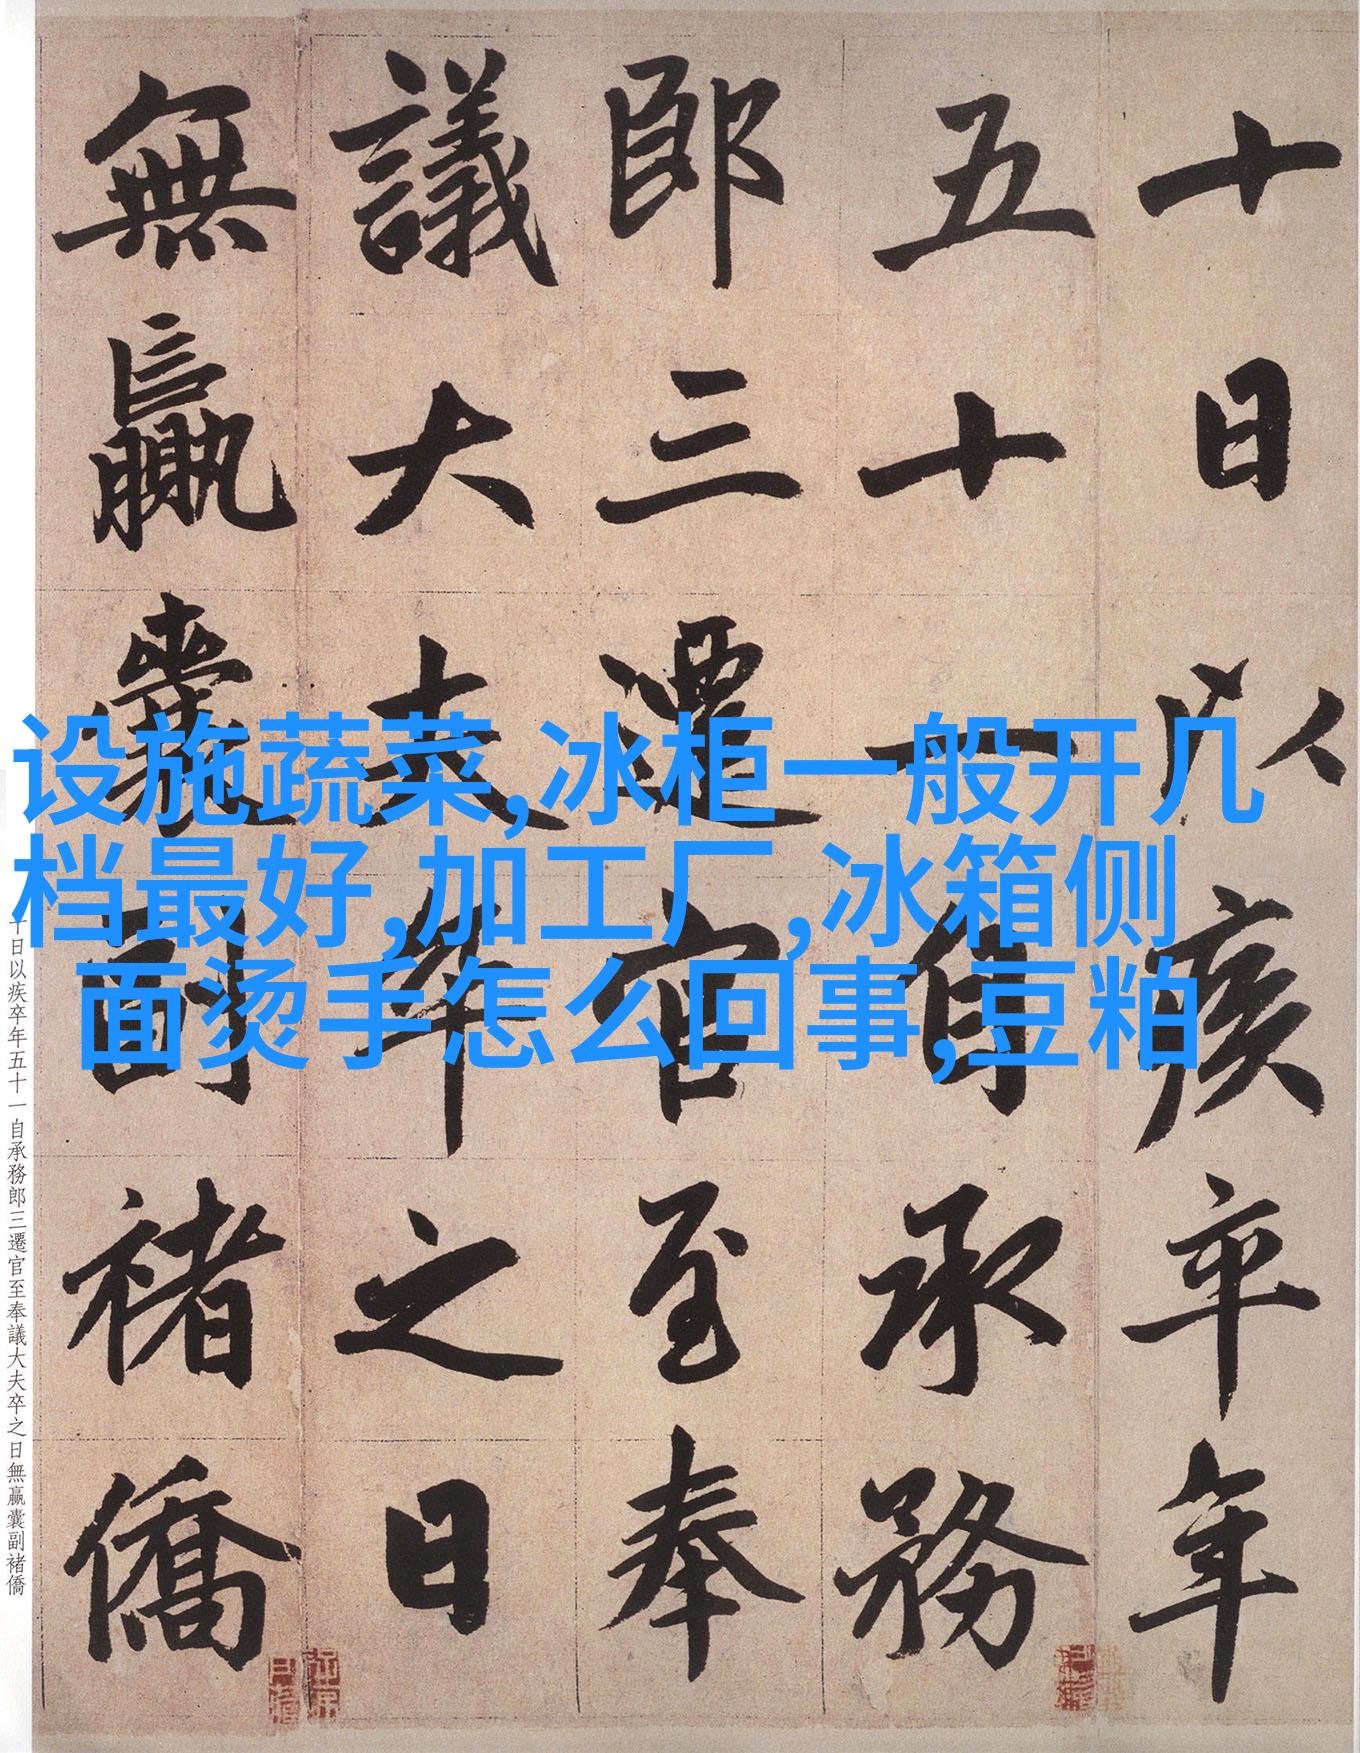 十日以疾卒年
五十一自承務
郎三遷官至奉
議大夫卒之日
無贏囊副褚僑
设施蔬菜,冰柜一般开几
档最好,加工厂,冰箱侧
面烫手怎么回事,豆粕
十日以疾卒年五十一自承務郎三遷官至奉議大夫卒之日無贏囊副褚僑